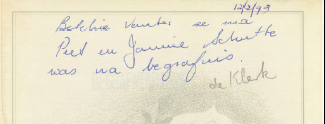 12/2/93
Batchie Venter se ma
Piet en Jannie Schutte
was na begrafnis.
de Klerk